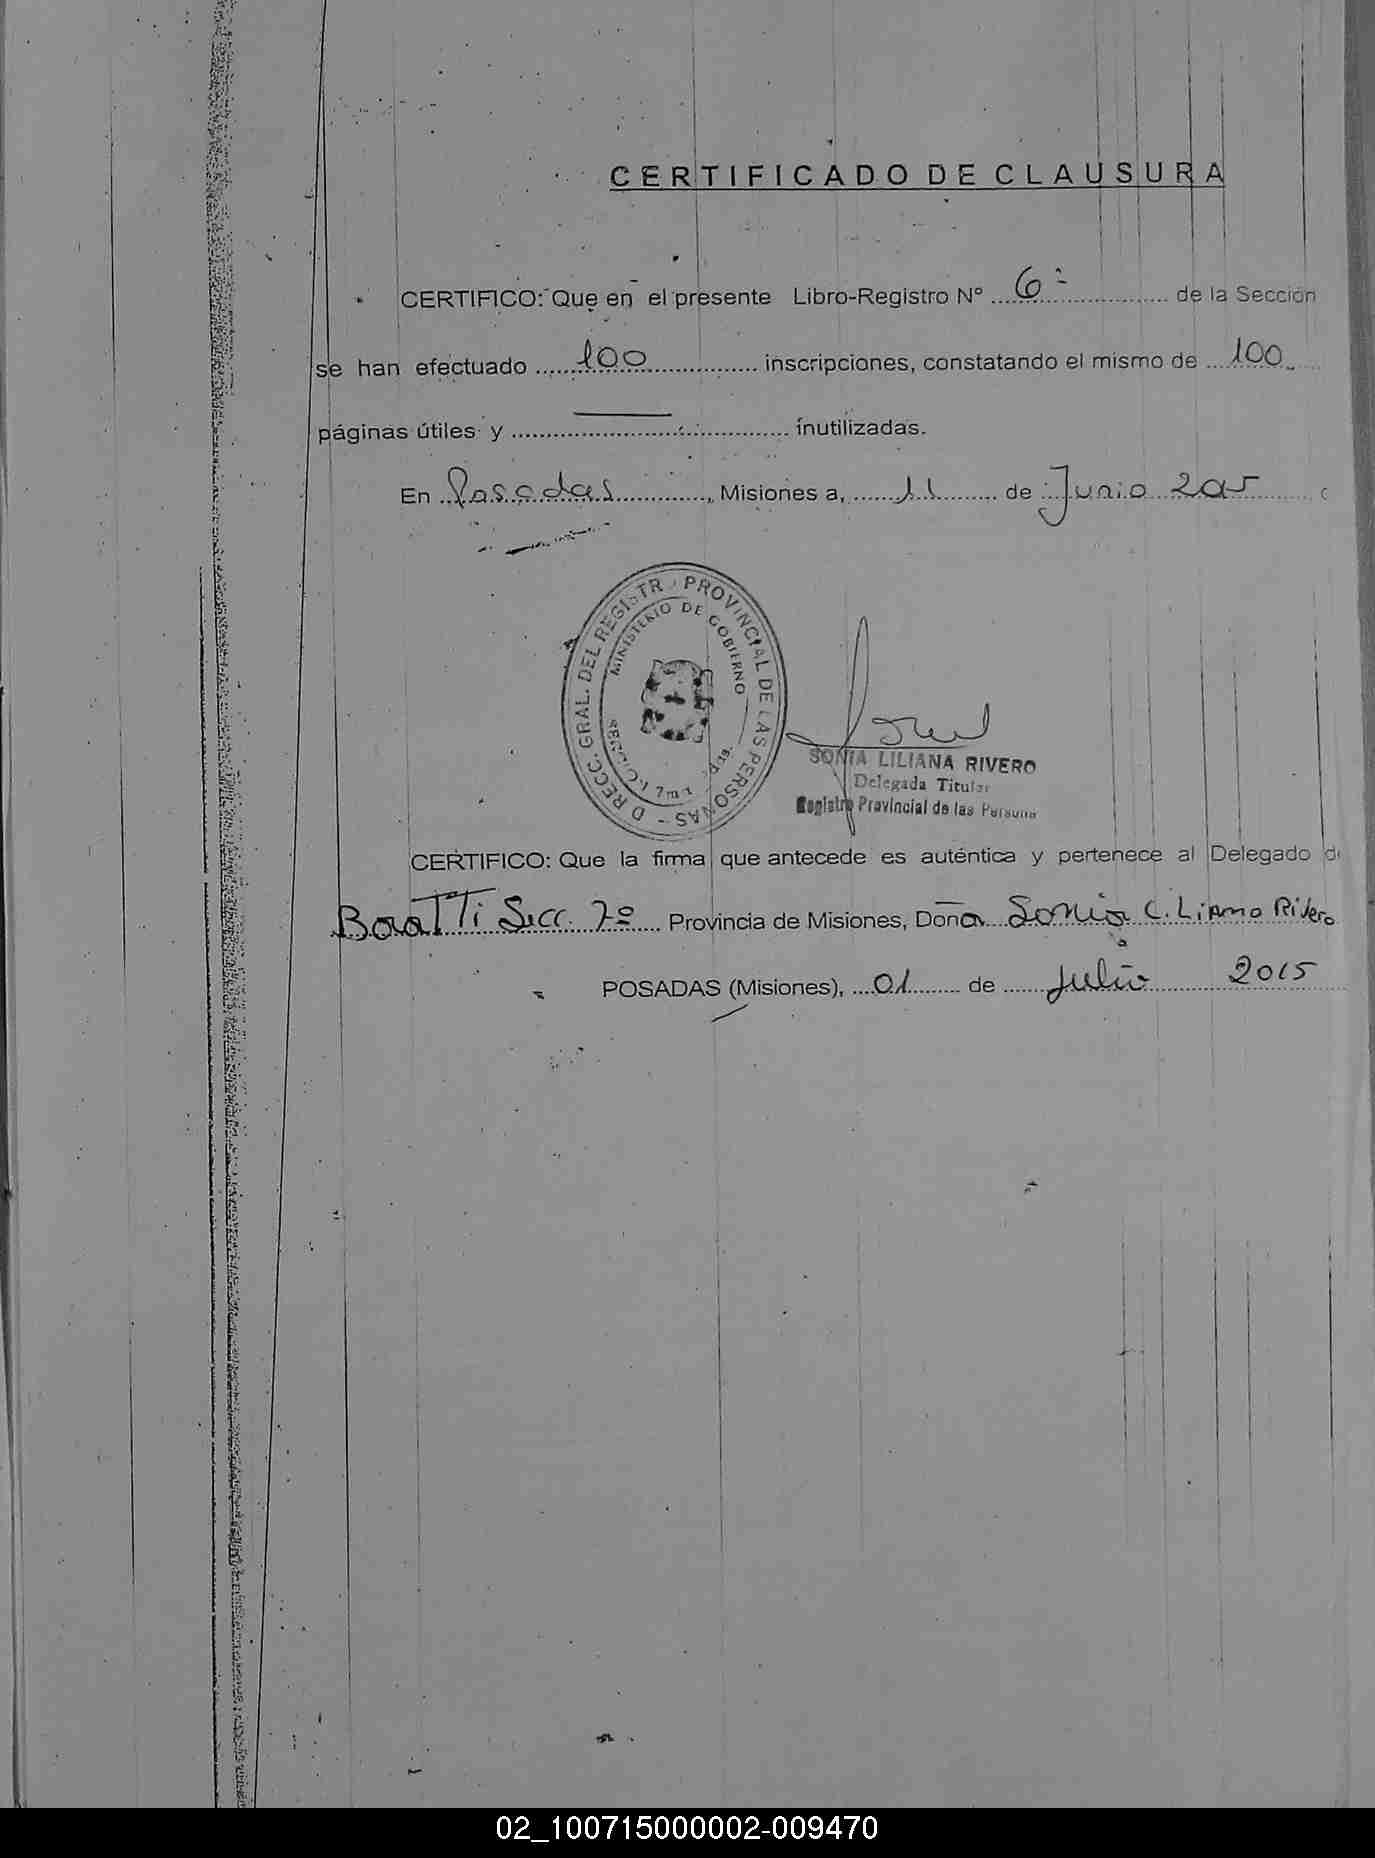 CERTIFICADO DE CLAUSURA
CERTIFICO: Que en el presente Libro-Registro N° 6 de la Sección
se han efectuado 100 inscripciones, constatando el mismo de 100
páginas útiles y ———— inutilizadas.
En Posadas, Misiones a, 11 de Junio 2015
DIRECC. GRAL. DEL REGISTR PROVINCIAL DE LAS PERSONAS
MINISTERIO DE GOBIERNO
SONIA LILIANA RIVERO
Delegada Titular
Registro Provincial de las Persona
CERTIFICO: Que la firma que antecede es auténtica y pertenece al Delegado d
Secc. 7º Provincia de Misiones, Doña Sonia Liliana Rivero
POSADAS (Misiones), 01 de Julio 2015
02_100715000002-009470